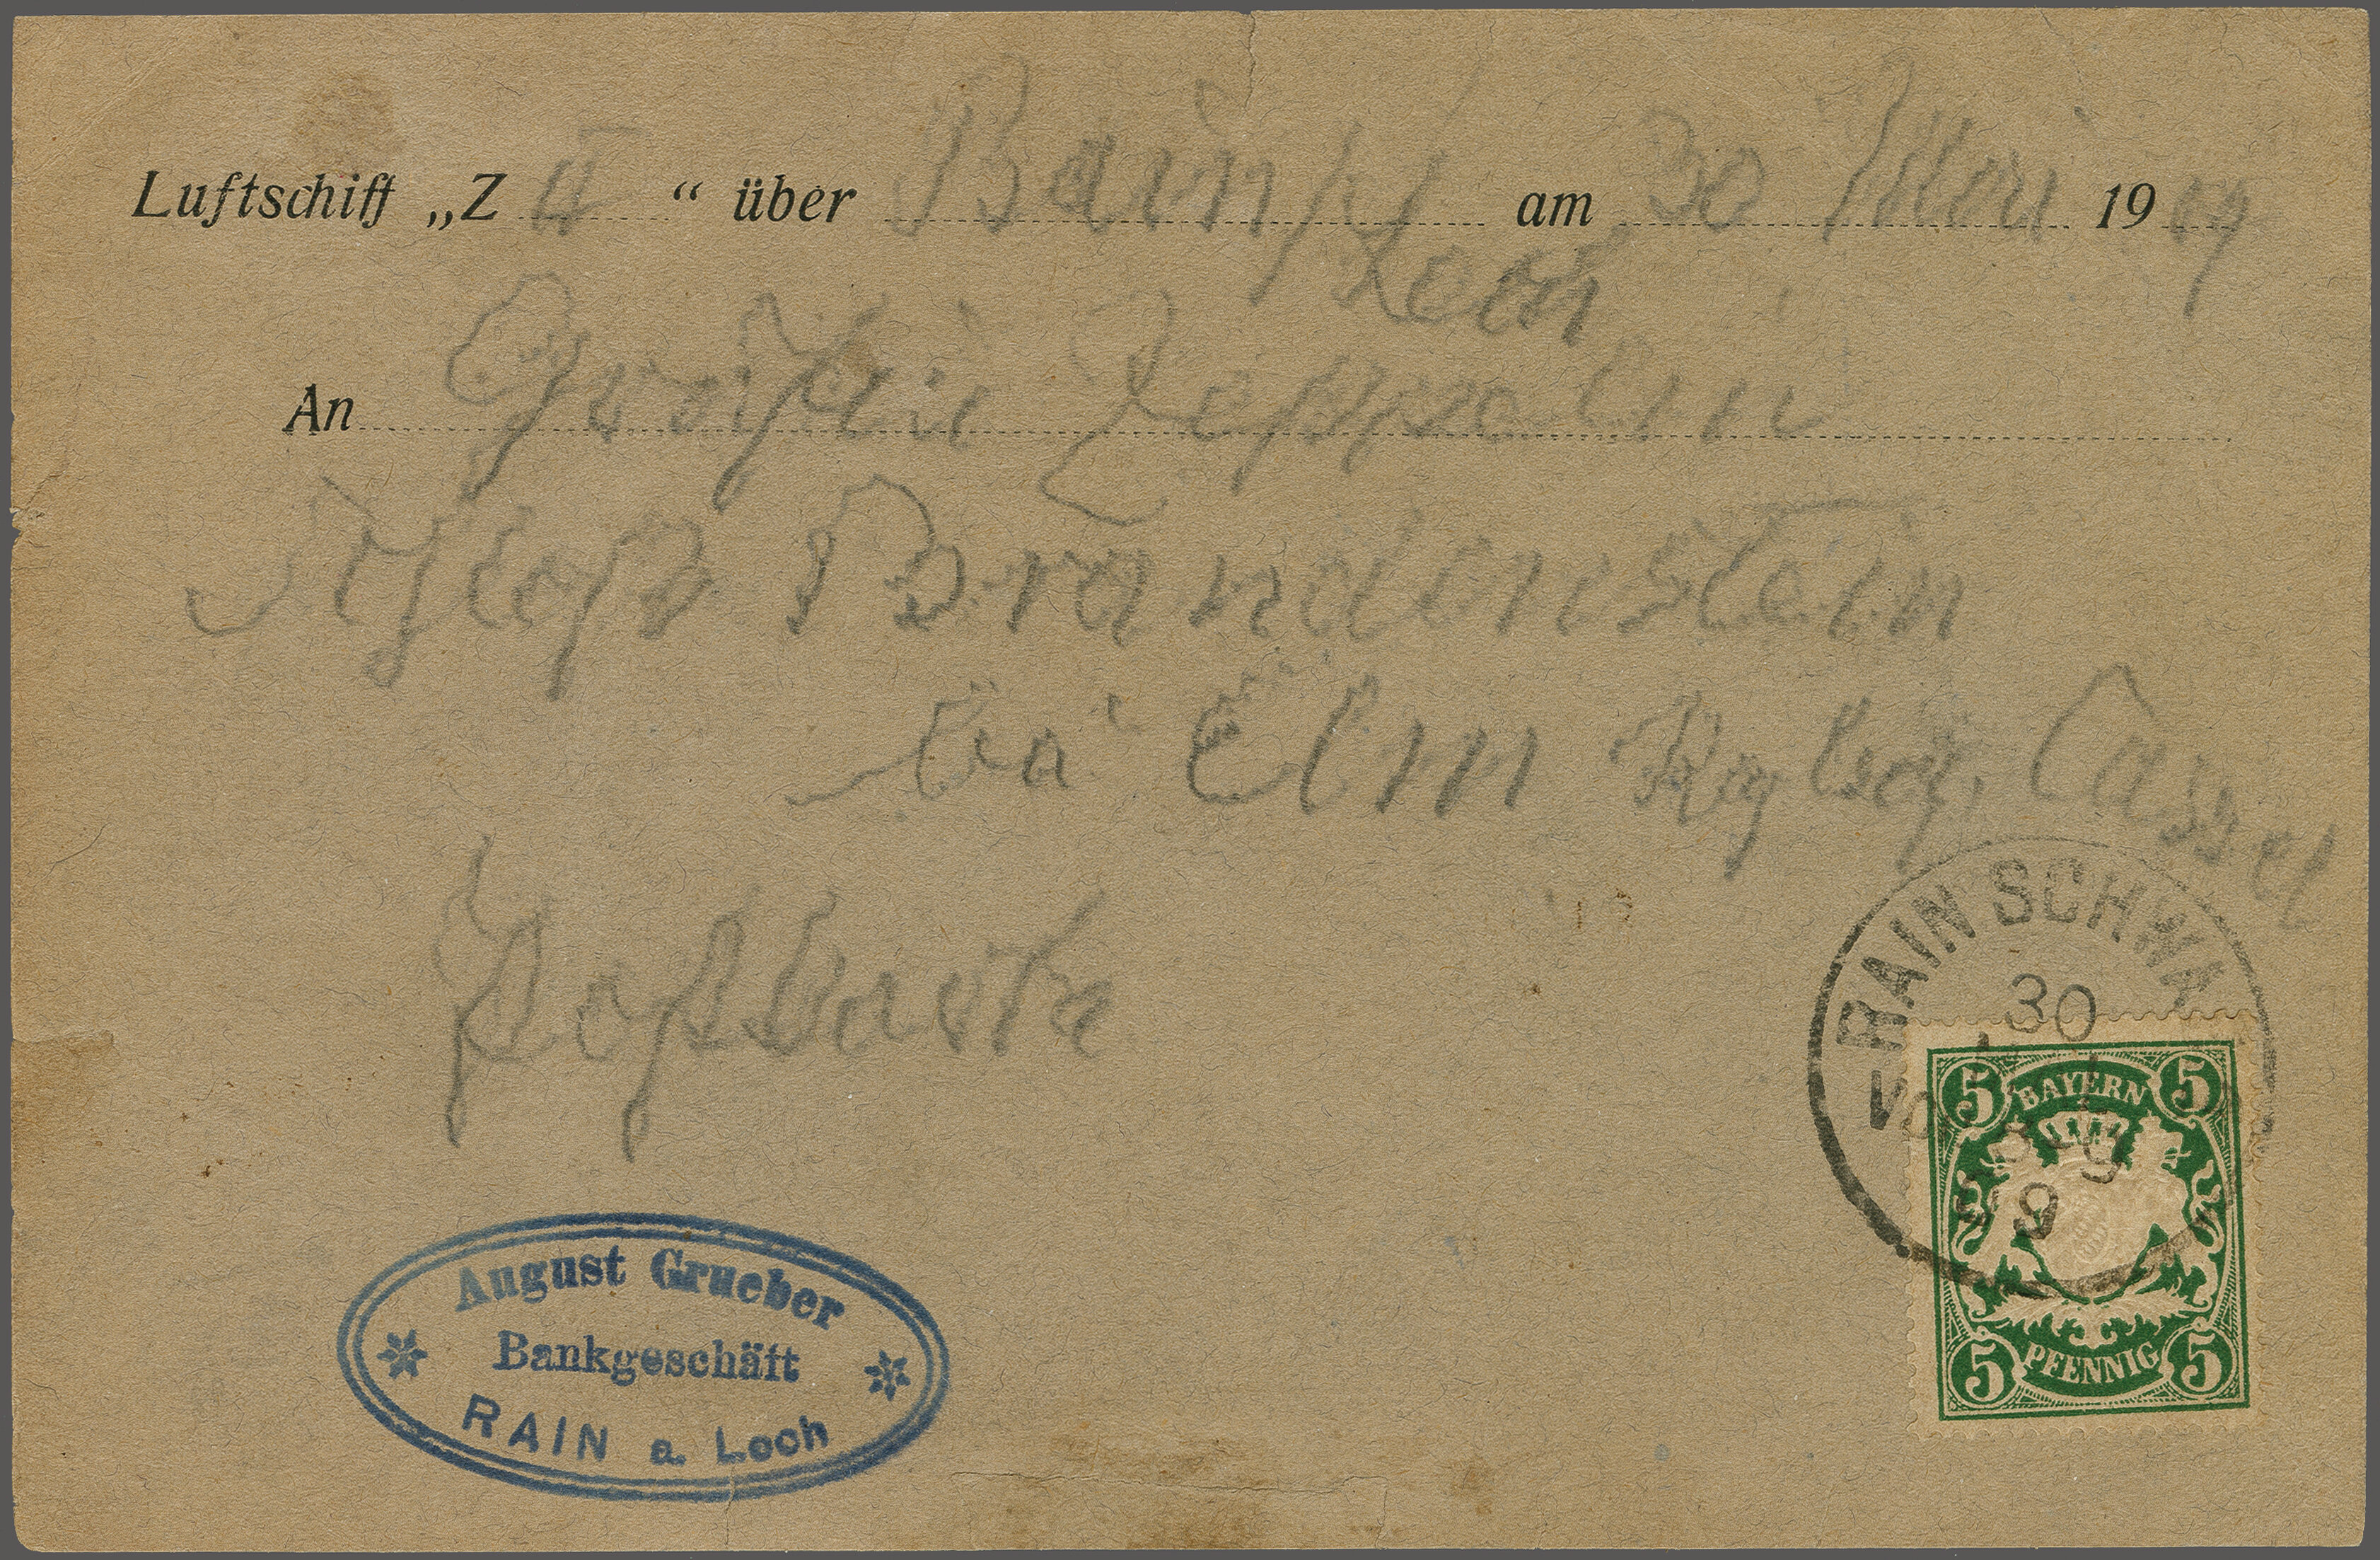 Luftschiff „Z II “ über Rain a/ am 30 Mai 1909
Lech
An Gräfin Zeppelin
Schloß Brandenstein
bei Elm Rgbez. Cassel
Postkarte
RAIN SCHWA
30
9
BAYERN
5 5
5 5
PFENNIG
August Grueber
Bankgeschäft
RAIN a. Lech